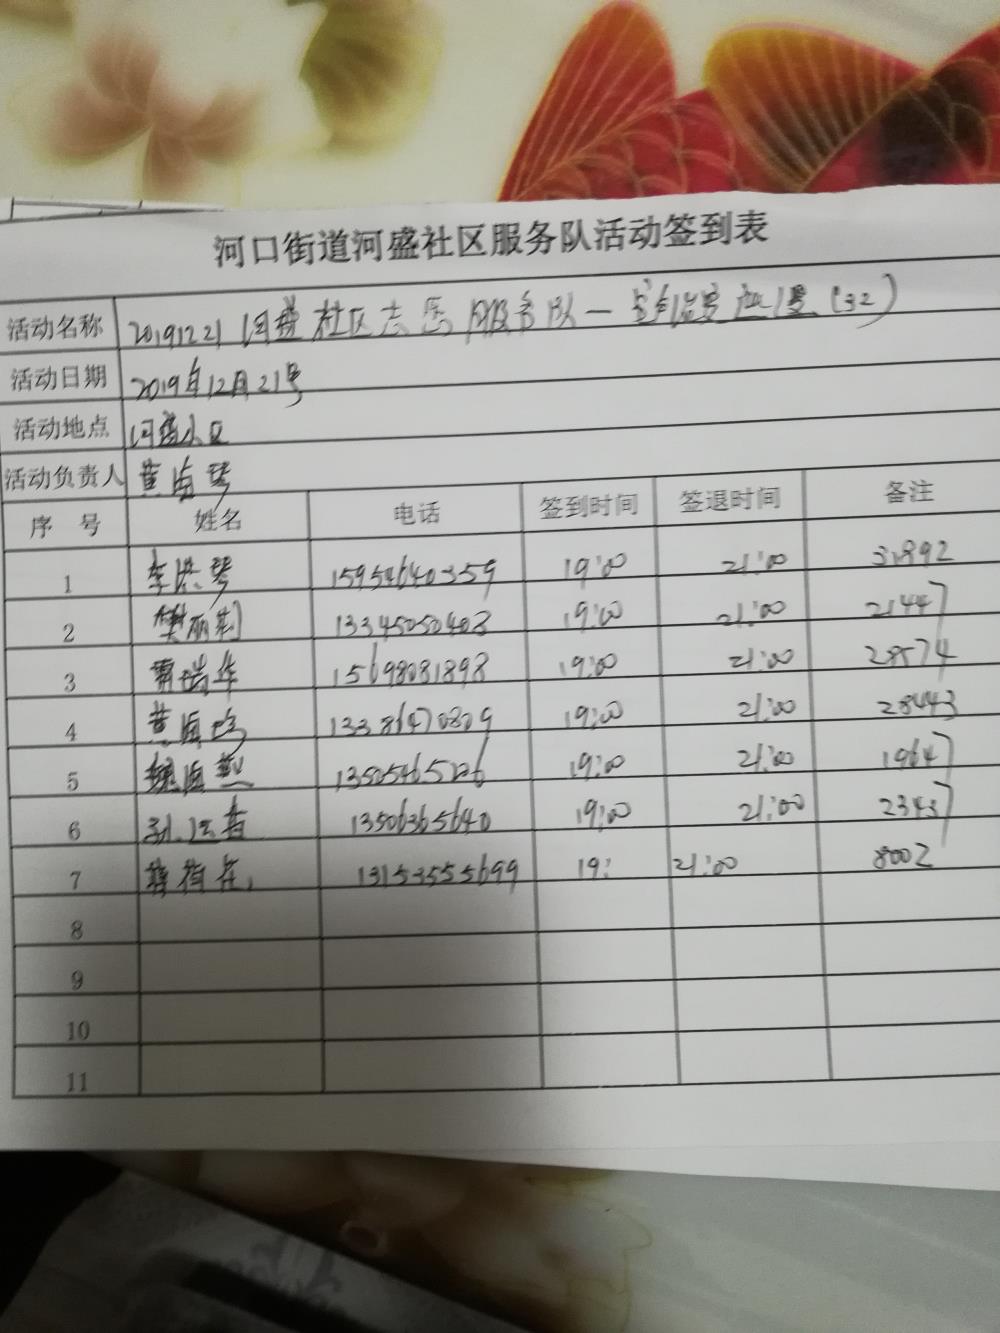 河口街道河盛社区服务队活动签到表
活动名称 20191221河盛社区志愿服务队一 (32)
活动日期 2019年12月21号
活动地点 河盛小区
活动负责人 黄海琴
序 号 姓名 电话 签到时间 签退时间 备注
1 李洪琴 15954640359 19:00 21:00 31892
2 樊丽 13345050403 19:00 21:00 21447
3 瑞华 15698081898 19:00 21:00 28574
4 黄海 13386470809 19:00 21:00 28443
5 魏海燕 13505465126 19:00 21:00 19647
6 13506365640 19:00 21:00 23437
7 13153555699 19: 21:00 8002
8
9
10
11